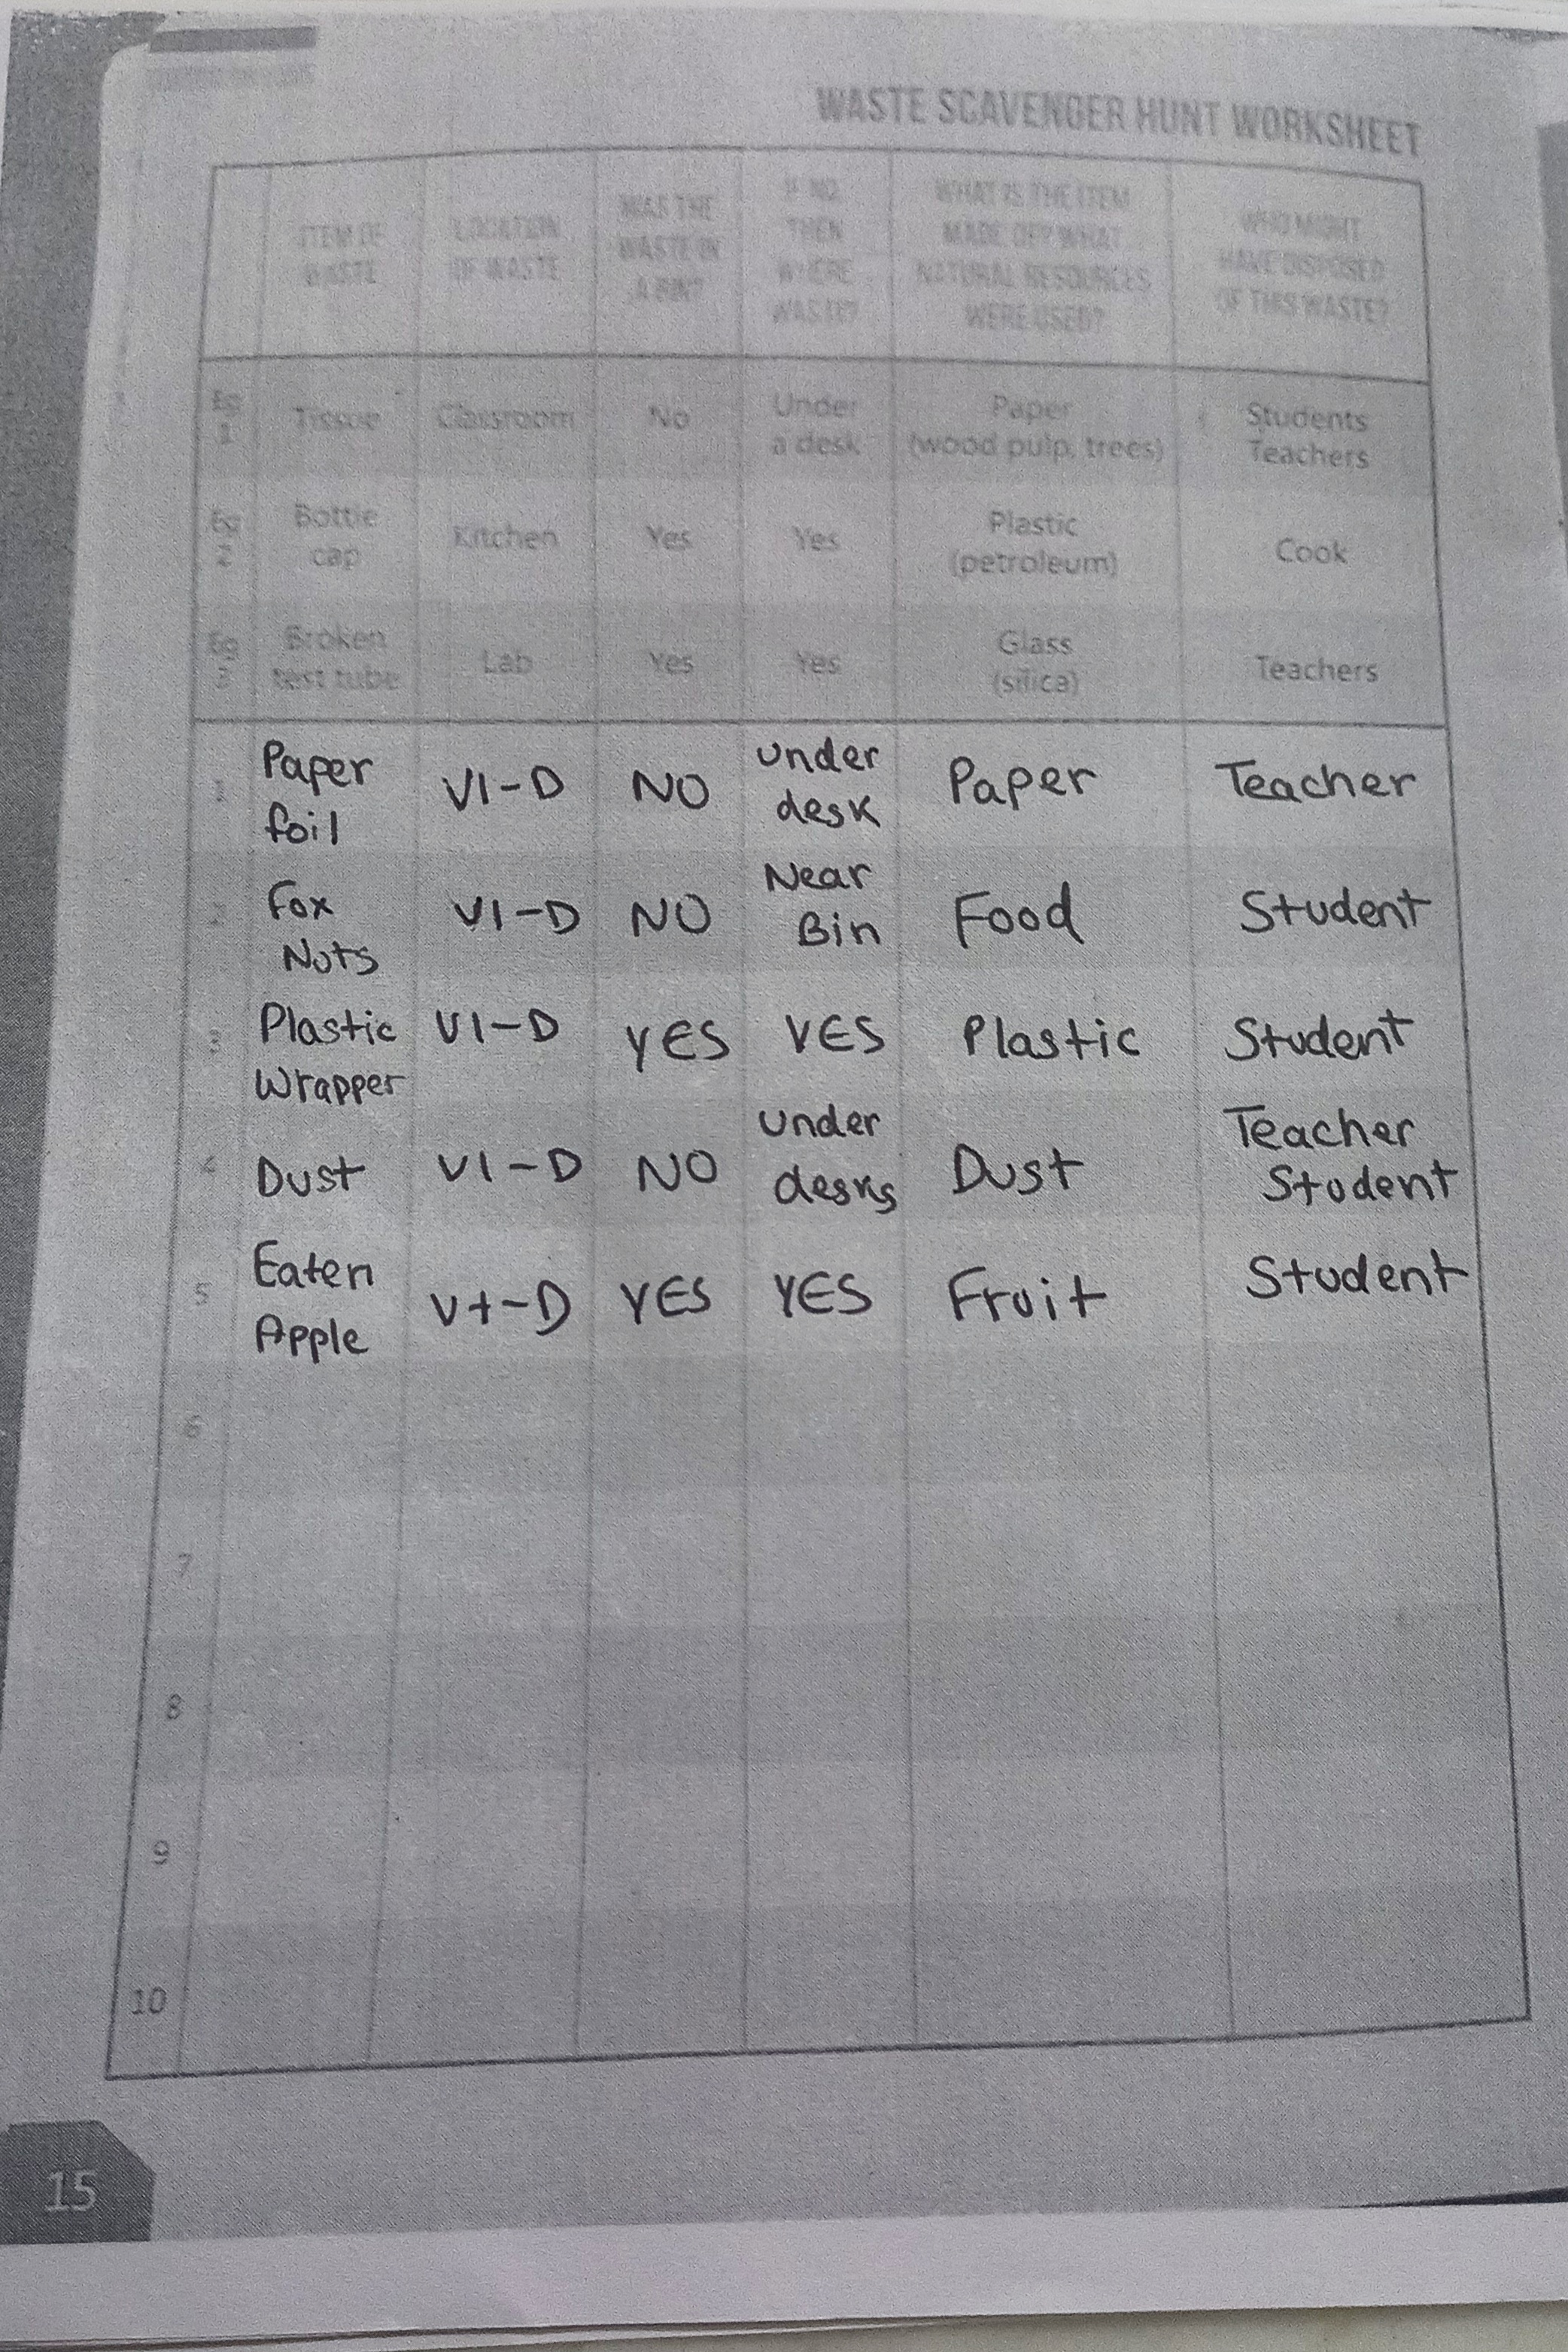 WASTE SCAVENGER HUNT WORKSHEET
ITEM OF WASTE
LOCATION OF WASTE
WAS THE WASTE IN A BIN?
IF NO, THEN WHERE WAS IT?
WHAT IS THE ITEM MADE OF? WHAT NATURAL RESOURCES WERE USED?
WHO MIGHT HAVE DISPOSED OF THIS WASTE?
Eg 1 Tissue Classroom No Under a desk Paper (wood pulp, trees) Students Teachers
Eg 2 Bottle cap Kitchen Yes Yes Plastic (petroleum) Cook
Eg 3 Broken test tube Lab Yes Yes Glass (silica) Teachers
1 Paper foil VI-D NO under desk Paper Teacher
2 Fox Nuts VI-D NO Near Bin Food Student
3 Plastic Wrapper VI-D YES YES Plastic Student
4 Dust VI-D NO under desks Dust Teacher Student
5 Eaten Apple VI-D YES YES Fruit Student
6
7
8
9
10
15